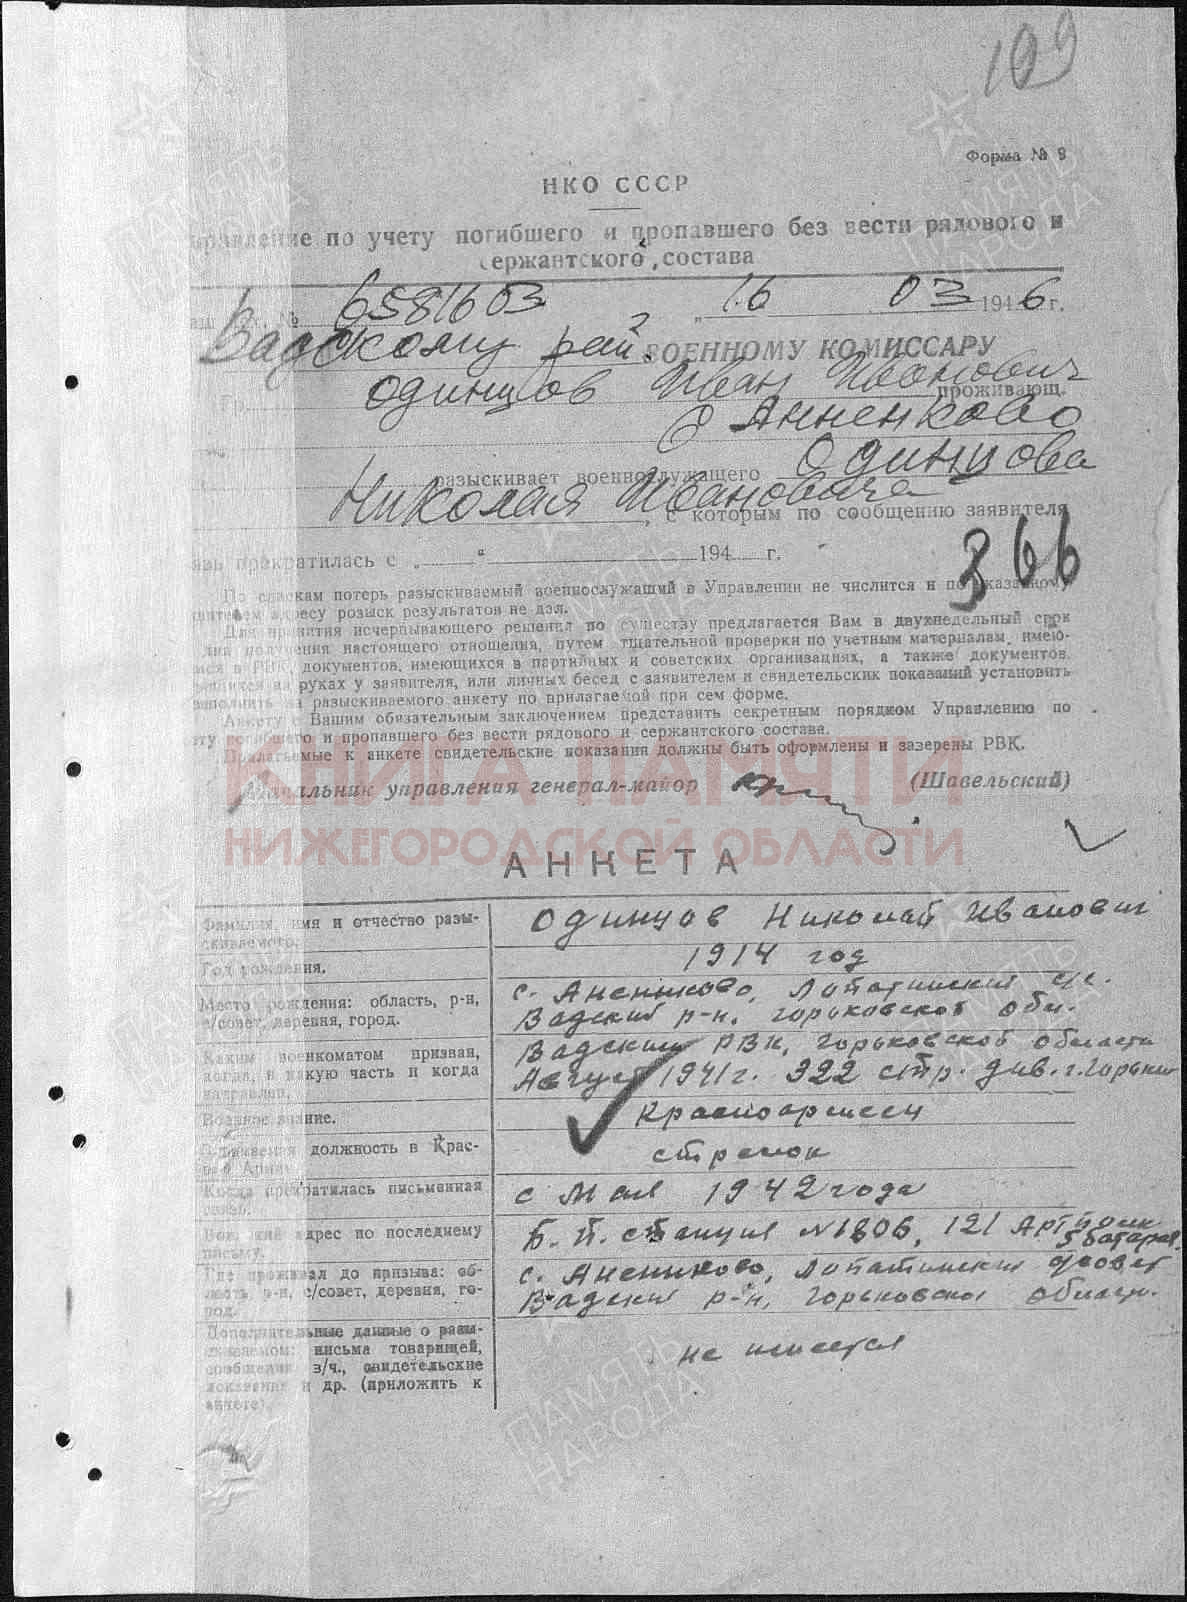 199
Форма № 8
НКО СССР
Управление по учету погибшего и пропавшего без вести рядового и
сержантского состава
№ 6581603 „16 03 1946 г.
Вадскому рай. ВОЕННОМУ КОМИССАРУ
Гр. Одинцов Иван Иванович проживающ.
с Анненково
разыскивает военнослужащего Одинцова
Николая Ивановича, с которым по сообщению заявителя
связь прекратилась с „ “ 194 г.
366
По спискам потерь разыскиваемый военнослужащий в Управлении не числится и по указанному
заявителем адресу розыск результатов не дал.
Для принятия исчерпывающего решения по существу предлагается Вам в двухнедельный срок
дня получения настоящего отношения, путем тщательной проверки по учетным материалам, имею-
щимся в РВК, документов, имеющихся в партийных и советских организациях, а также документов,
имеющихся на руках у заявителя, или личных бесед с заявителем и свидетельских показаний установить
заполнить на разыскиваемого анкету по прилагаемой при сем форме.
Анкету с Вашим обязательным заключением представить секретным порядком Управлению по
учету погибшего и пропавшего без вести рядового и сержантского состава.
Прилагаемые к анкете свидетельские показания должны быть оформлены и заверены РВК.
Начальник управления генерал-майор (Шавельский)
КНИГА ПАМЯТИ
НИЖЕГОРОДСКОЙ ОБЛАСТИ
АНКЕТА
Фамилия, имя и отчество разы-
скиваемого.
Одинцов Николай Иванович
Год рождения.
1914 год
Место рождения: область, р-н,
с/совет, деревня, город.
с. Аненково, Лопатинский с/с.
Вадский р-н, Горьковской обл.
Каким военкоматом призван,
когда, в какую часть и когда
направлен.
Вадским РВК, Горьковской области
Август 1941 г. 322 стр. див. г. Горький
Военное звание.
Красноармеец
Занимаемая должность в Крас-
ной Армии
стрелок
Когда прекратилась письменная
связь.
с Мая 1942 года
Воинский адрес по последнему
письму.
Б. П. станция № 1806, 121 Арт полк
5 батарея.
Где проживал до призыва: об-
ласть, р-н, с/совет, деревня, го-
род.
с. Аненково, Лопатинский с/совет
Вадский р-н, Горьковской области.
Дополнительные данные о разы-
скиваемом: письма товарищей,
сообщения в/ч., свидетельские
показания и др. (приложить к
анкете).
не имеется
ПАМЯТЬ
НАРОДА